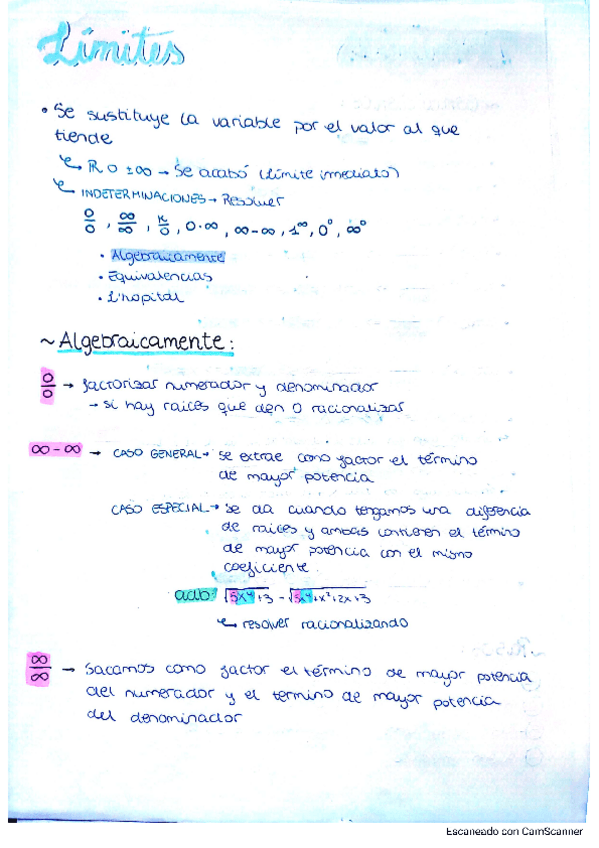 Límites
• Se sustituye la variable por el valor al que
tiende
↳ R o ±∞ → Se acabó (Límite inmediato)
↳ INDETERMINACIONES → Resolver
0/0, ∞/∞, K/0, 0·∞, ∞-∞, 1^∞, 0^0, ∞^0
• Algebraicamente
• Equivalencias
• L'hopital
~ Algebraicamente:
0/0 → factorizar numerador y denominador
→ si hay raíces que den 0 racionalizar
∞-∞ → CASO GENERAL → se extrae como factor el término
de mayor potencia
CASO ESPECIAL → se da cuando tengamos una diferencia
de raíces y ambas contienen el término
de mayor potencia con el mismo
coeficiente.
√5x⁴+3 - √5x⁴+x²+2x+3
↳ resolver racionalizando
∞/∞ → Sacamos como factor el término de mayor potencia
del numerador y el termino de mayor potencia
del denominador
Escaneado con CamScanner